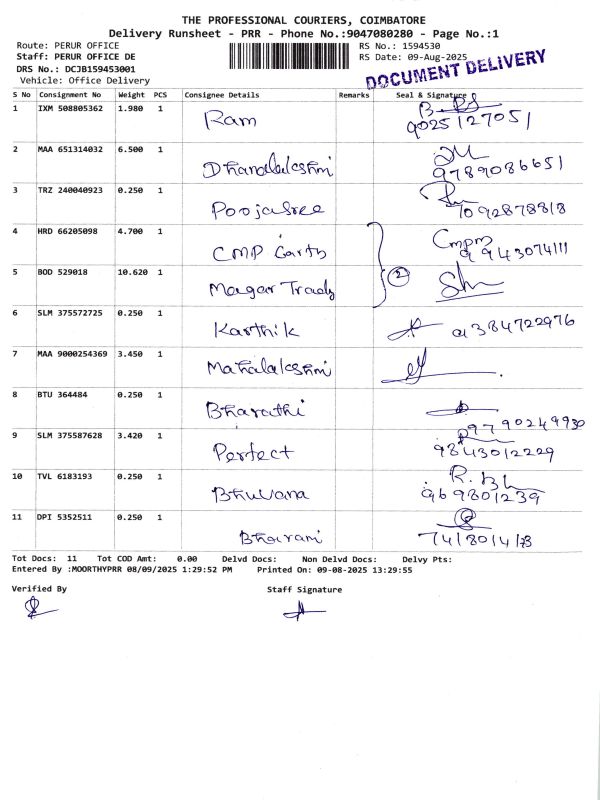 THE PROFESSIONAL COURIERS, COIMBATORE
Delivery Runsheet - PRR - Phone No.:9047080280 - Page No.:1
Route: PERUR OFFICE RS No.: 1594530
Staff: PERUR OFFICE DE RS Date: 09-Aug-2025
DRS No.: DCJB159453001
Vehicle: Office Delivery
DOCUMENT DELIVERY
S No Consignment No Weight PCS Consignee Details Remarks Seal & Signature
1 IXM 508805362 1.980 1 Ram 9025127051
2 MAA 651314032 6.500 1 Dhanalakshmi 9789086651
3 TRZ 240040923 0.250 1 Poojasree 7092878818
4 HRD 66205098 4.700 1 CMP Cmpm 9943074111
5 BOD 529018 10.620 1 2
6 SLM 375572725 0.250 1 Karthik 9384722976
7 MAA 9000254369 3.450 1 Mahalakshmi
8 BTU 364484 0.250 1 Bharathi 9790249930
9 SLM 375587628 3.420 1 Perfect 9843012229
10 TVL 6183193 0.250 1 Bhuvana 969801239
11 DPI 5352511 0.250 1 Bhavani
Tot Docs: 11 Tot COD Amt: 0.00 Delvd Docs: Non Delvd Docs: Delvy Pts:
Entered By :MOORTHYPRR 08/09/2025 1:29:52 PM Printed On: 09-08-2025 13:29:55
Verified By Staff Signature